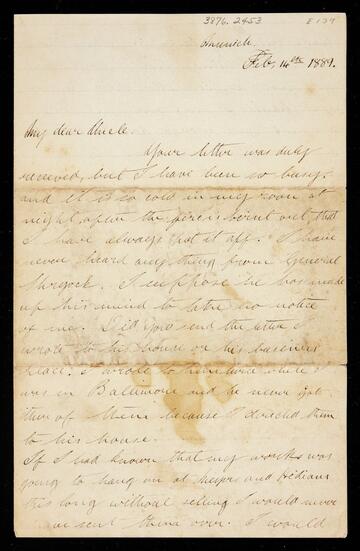 3876.2453
E 139
Munich.
Feb. 14th 1889.
My dear Uncle.
Your letter was duly
received, but I have been so busy.
and it is so cold in my room at
night after the fire is burnt out, that
I have always put it off. I have
never heard any thing from General
Shryock. I suppose he has made
up his mind to take no notice
of me. Did you send the letter I
wrote to his house or his business
place. I wrote to him twice when I
was in Baltimore and he never got
them because I directed them
to his house.
If I had known that my works was
going to hang on at and
this long without selling I would never
sent them over. I would